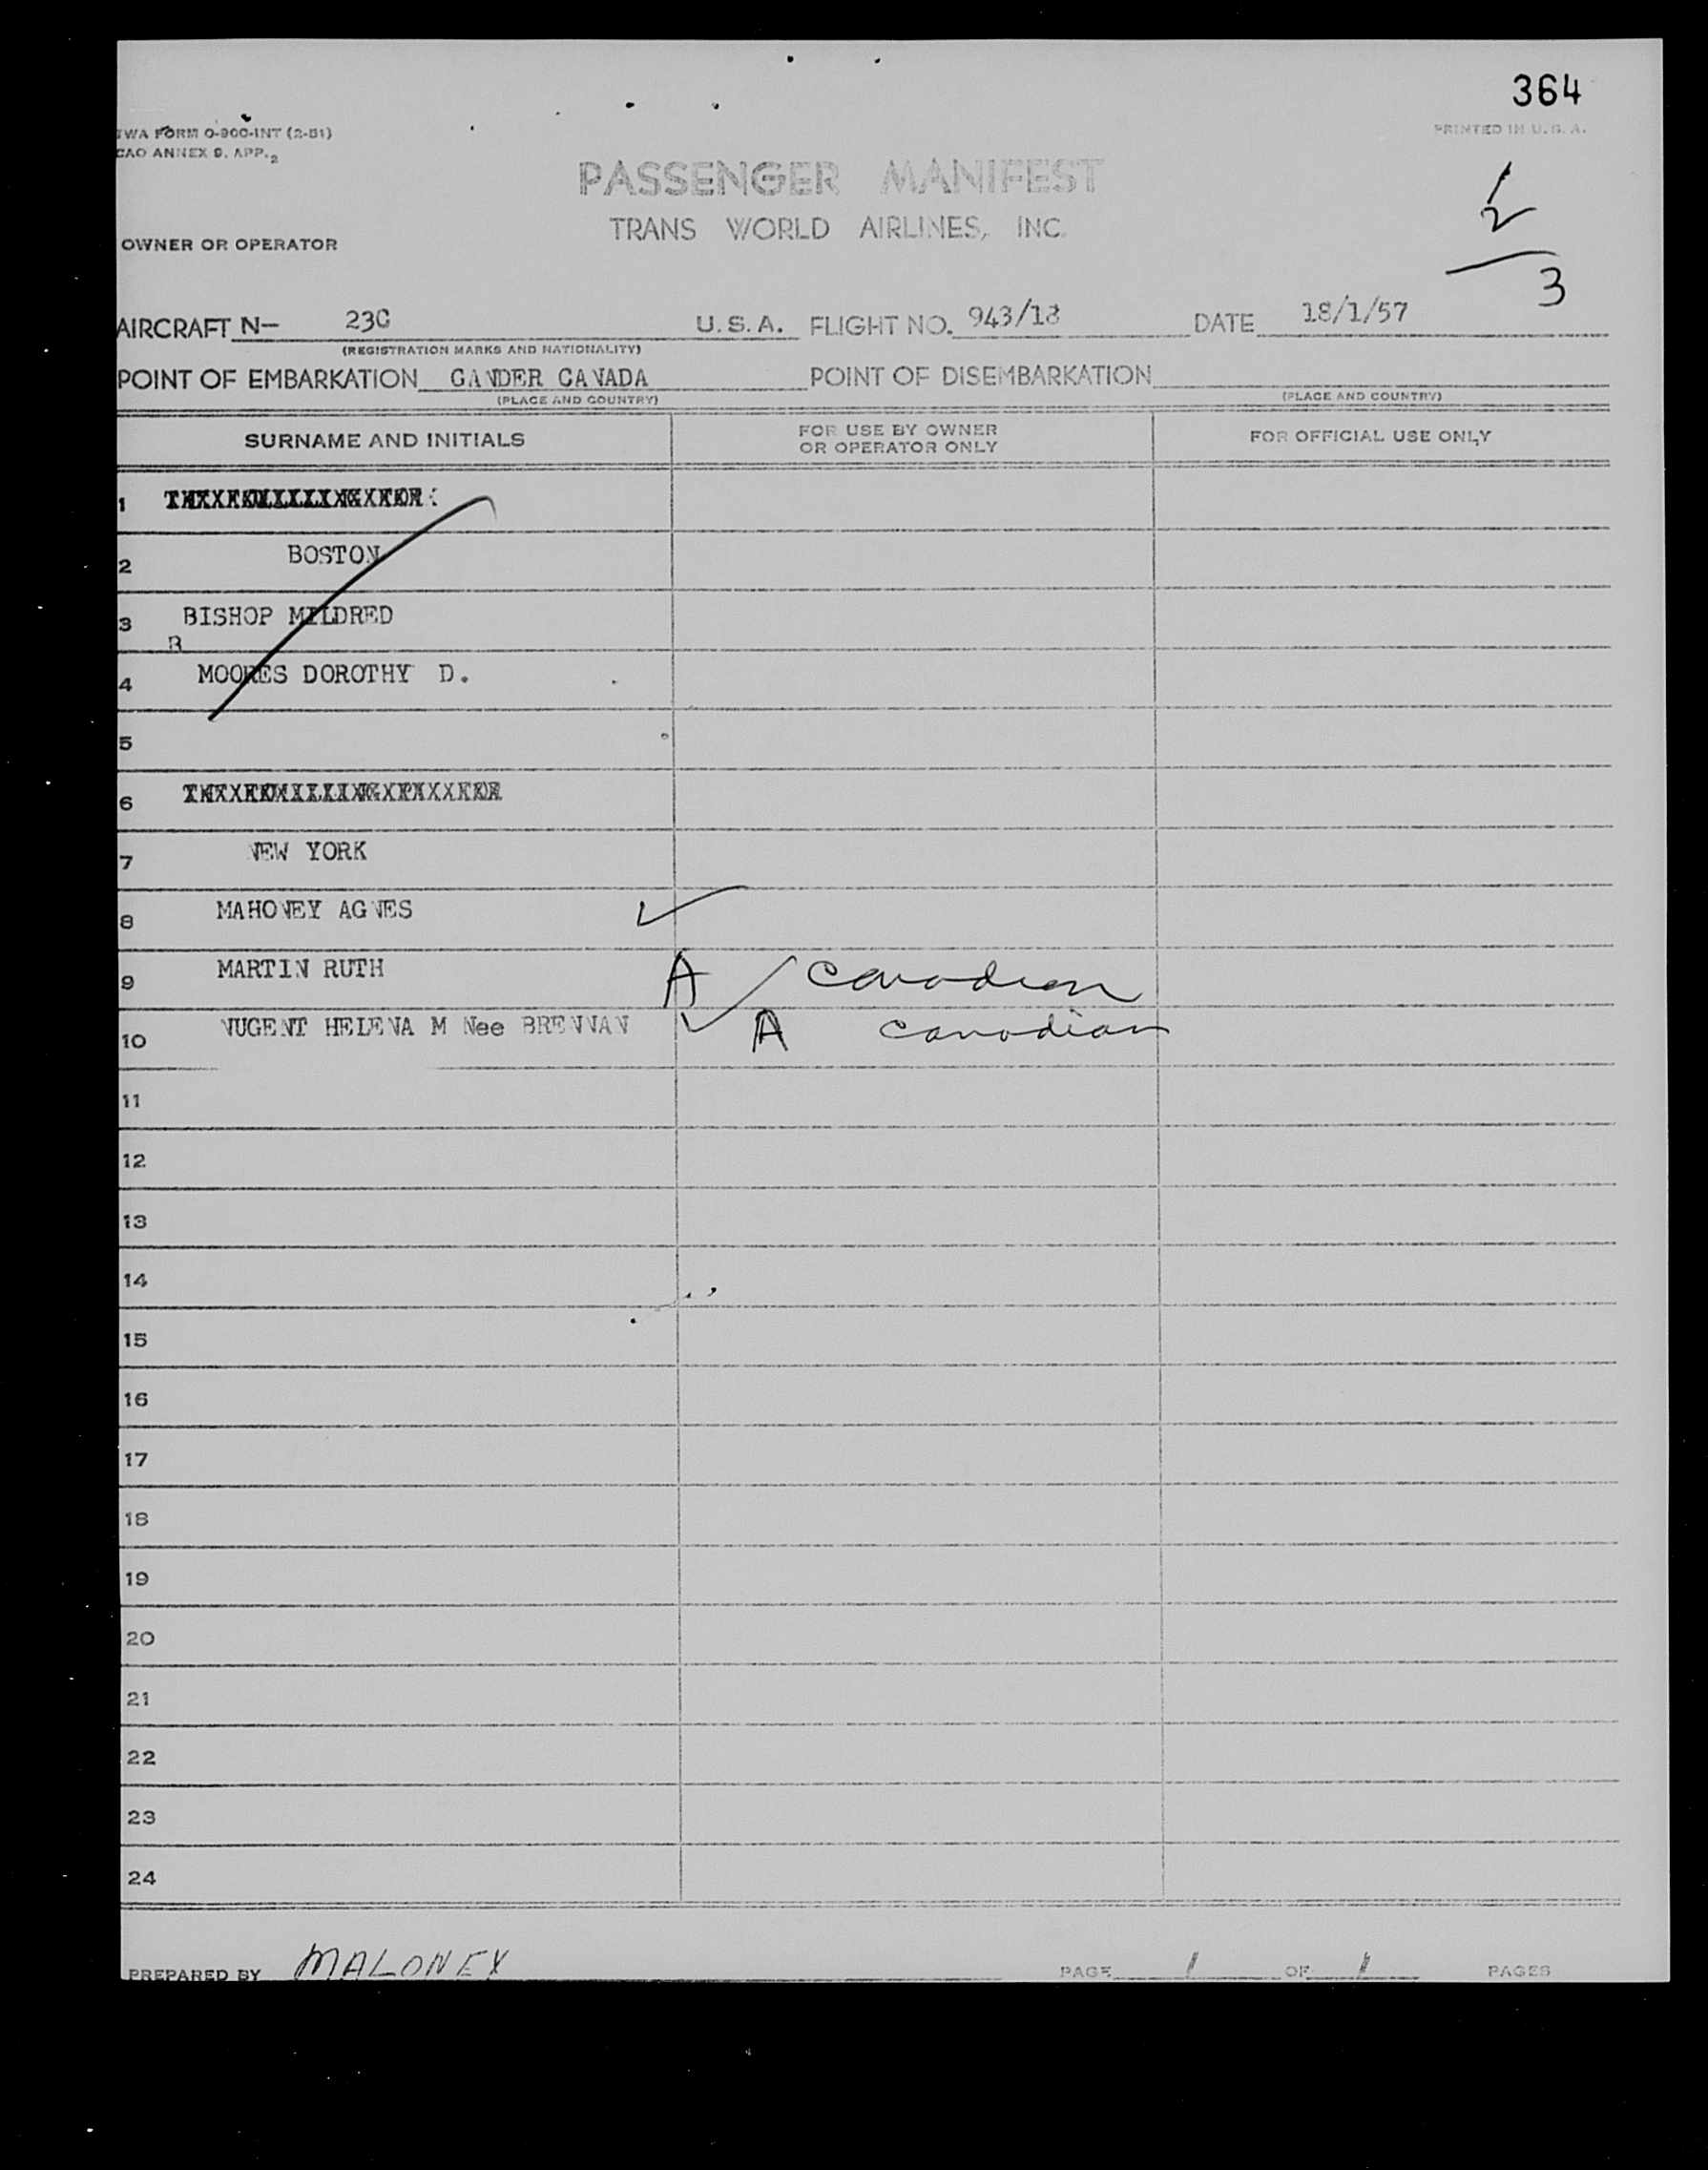 364
TWA FORM O-900-INT (2-51)
PRINTED IN U.S.A.
CAO ANNEX 9, APP. 2
PASSENGER MANIFEST
TRANS WORLD AIRLINES, INC.
OWNER OR OPERATOR
1
2
3
AIRCRAFT N- 23C U.S.A. FLIGHT NO. 943/18 DATE 18/1/57
(REGISTRATION MARKS AND NATIONALITY)
POINT OF EMBARKATION GANDER CANADA POINT OF DISEMBARKATION
(PLACE AND COUNTRY) (PLACE AND COUNTRY)
SURNAME AND INITIALS FOR USE BY OWNER OR OPERATOR ONLY FOR OFFICIAL USE ONLY
1
2 BOSTON
3 BISHOP MILDRED
B
4 MOORES DOROTHY D.
5
6
7 NEW YORK
8 MAHONEY AGNES ✓
9 MARTIN RUTH A ✓ Canadian
10 NUGENT HELENA M Nee BRENNAN ✓ A Canadian
11
12
13
14
15
16
17
18
19
20
21
22
23
24
PREPARED BY MALONEY PAGE 1 OF 1 PAGES